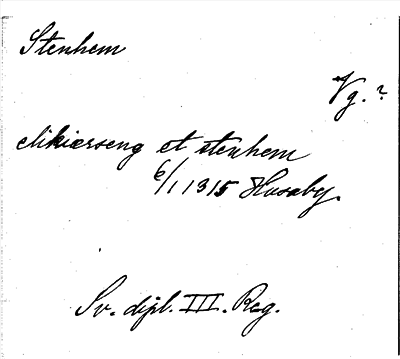 Stenhem
Vg.?
elikiærseng et stenhem
6/1 1315 Husaby.
Sv. dipl. III. Reg.